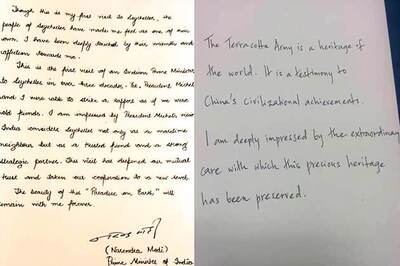 Though this is my first visit to Seychelles, the
people of Seychelles have made me feel as one of their
own. I have been deeply touched by their warmth and
affection towards me.
This is the first visit of an Indian Prime Minister
to Seychelles in over three decades. Yet, President Michel
and I were able to strike a rapport as if we were
old friends. I am impressed by President Michel's
India considers Seychelles not only as a maritime
neighbour but as a trusted friend and a strong
strategic partner. This visit has defined our mutual
trust and taken our cooperation to a new level.
The beauty of this "Paradise on Earth" will
remain with me forever.
(Narendra Modi)
Prime Minister of India
The Terracotta Army is a heritage of
the world. It is a testimony to
China's civilizational achievements.
I am deeply impressed by the extraordinary
care with which this precious heritage
has been preserved.